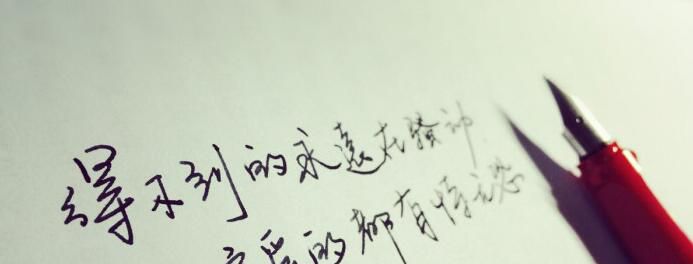 得不到的永遠在骚动
被爱的都有恃无恐